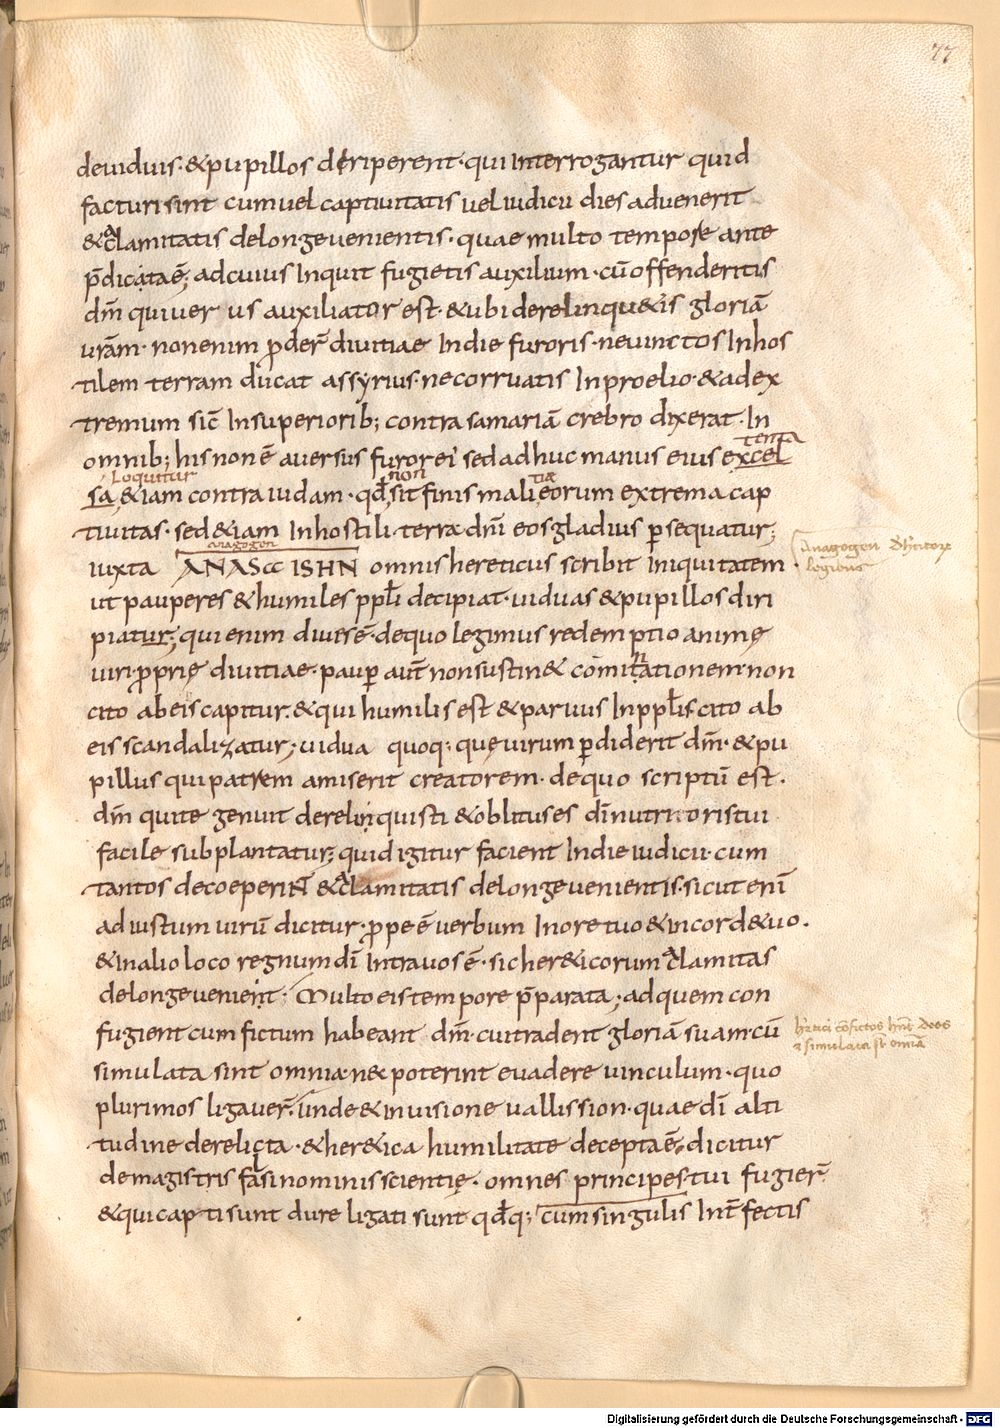 77
deuiduis·&pupillos deriperent·qui Interrogantur quid
facturi sint cum uel captiuitatis uel iudicii dies aduenerit
&calamitatis delonge uenientis·quae multo tempore ante
p̄dicata ē; adcuius Inquit fugietis auxilium·cū offenderitis
dm̄ qui uer us auxiliator est·&ubi derelinqu&is gloriā
urām·nonenim ꝓder̄ diuitiae Indie furoris·neuinctos Inhos
tilem terram ducat assyrius·necorruatis Inproelio·&adex
tremum sic̄ Insuperiorib; contra samariā crebro dixerat·In
tenta
omnib; his non ē auersus furor ei sed adhuc manus eius excel
Loquitur non tiæ
sa &iam contra iudam·qd̄ sit finis mali eorum extrema cap
tiuitas·sed&iam Inhostili terra dn̄i eos gladius ꝑsequatur;
anagogen
iuxta ANAΓΩΓHN omnis hereticus scribit Iniquitatem
Anagogen
ut pauperes &humiles ppl̄i decipiat·uiduas &pupillos diri
piatur; qui enim diues ē·dequo legimus redemptio animę
uiri ꝓprię diuitiae·pauꝑ aut̄ nonsustin& comitationem·non
cito abeis capitur·&qui humilis est &paruus Inppl̄is cito ab
eis scandalizatur; uidua quoq; que uirum ꝑdiderit dm̄·&pu
pillus qui patrem amiserit creatorem·dequo scriptū est·
dm̄ qui te genuit derelinquisti &oblitus es dī nutritoris tui
facile subplantatur; quid igitur facient Indie iudicii·cum
tantos decoeperint &calamitatis delonge uenientis·sicut enī
ad iustum uirū dicitur·ꝓpe ē uerbum Inore tuo &incord&uo·
&inalio loco regnum dī Intra uos ē·sic her&icorum calamitas
delonge uenient·Multo eis tempore p̄parata; adquem con
fugient cum fictum habeant dm̄·cui tradent gloriā suam·cū
h̄etici cōfictos hn̄t deos
& simulata st̄ omīa
simulata sint omnia·ne poterint euadere uinculum·quo
plurimos ligauer̄·Unde &inuisione uallis sion·quae dī alti
tudine derelicta·&her&ica humilitate decepta ē·dicitur
demagistris falsi nominis scientię·omnes principes tui fugier̄
&qui capti sunt dure ligati sunt qd̄q; cum singulis Int̄fectis
Digitalisierung gefördert durch die Deutsche Forschungsgemeinschaft - DFG